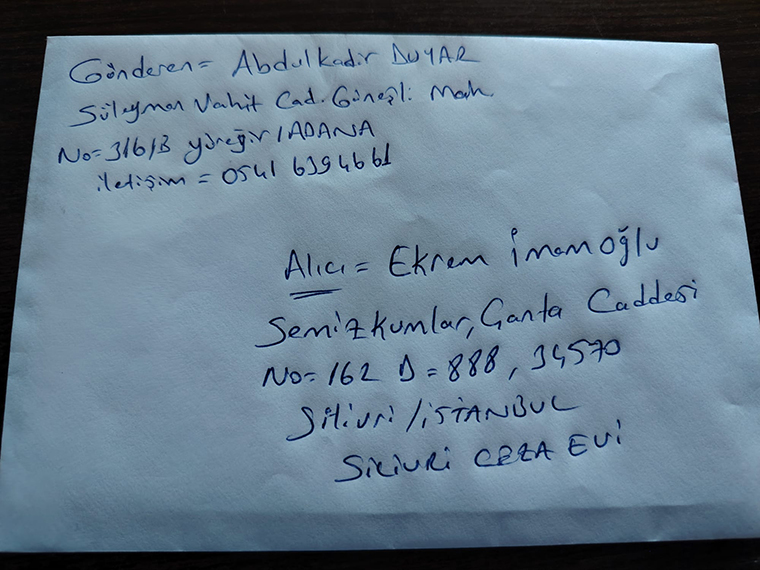 Gönderen = Abdulkadir DUYAR
Süleyman Vahit Cad. Güneşli Mah
No = 316/B yüreğir / ADANA
iletişim = 0541 6394661
Alıcı = Ekrem İmamoğlu
Semizkumlar, Çanta Caddesi
No = 162 D = 888, 34570
Silivri / iSTANBUL
SiLiVRi CEZA EVi